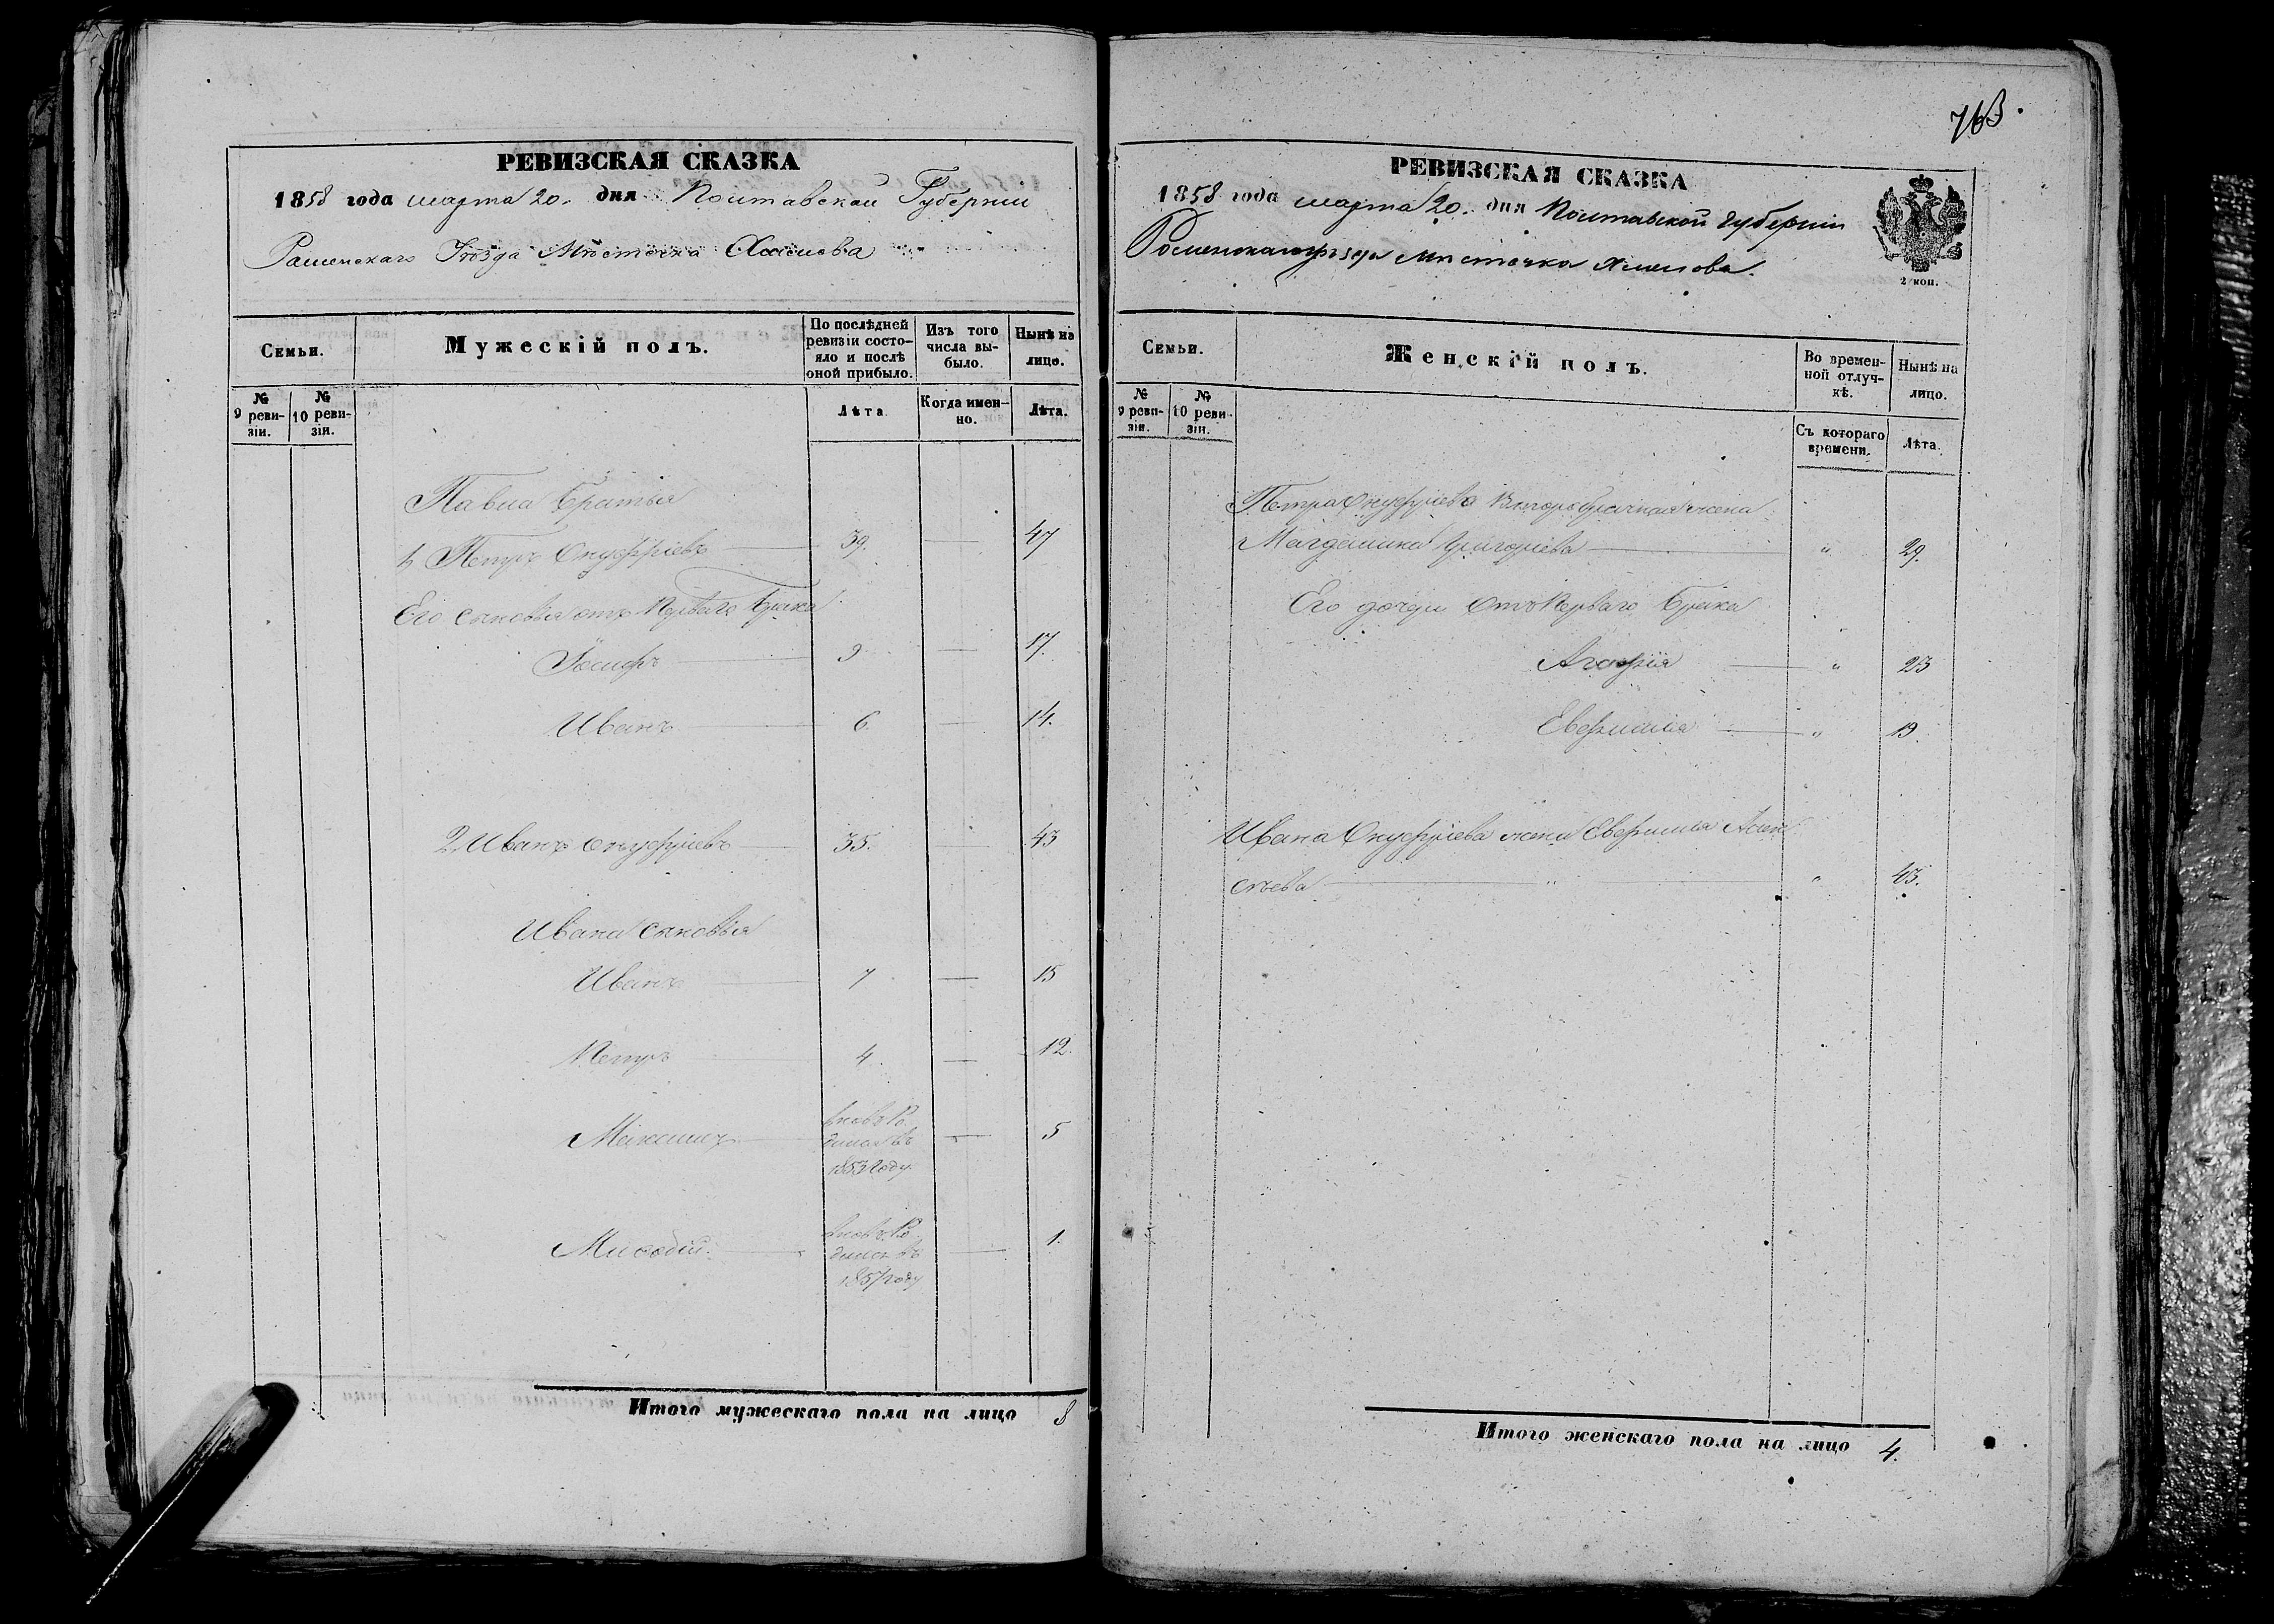 РЕВИЗСКАЯ СКАЗКА
1858 года марта 20. дня Полтавской Губерніи
Роменскаго Уѣзда Мѣстечка Хмелова
Семьи.
Мужескій полъ.
По послѣдней ревизіи состояло и послѣ оной прибыло.
Изъ того числа выбыло.
Нынѣ на лицо.
№ 9 ревизіи.
№ 10 ревизіи.
Лѣта
Когда именно.
Лѣта.
Павла братья
1, Петръ Онуфріевъ 39. — 47
Его сыновья отъ перваго брака
Іосифъ 9 — 17.
Иванъ 6 — 14.
2, Иванъ Онуфріевъ 35. 43
Ивана сыновья
Иванъ 7 — 15
Петръ 4. — 12.
Максимъ вновь ро
дился въ — 5
1853 году
Мифодій вновь ро
дился въ — 1.
1857 году
Итого мужескаго пола на лицо 8
763.
РЕВИЗСКАЯ СКАЗКА
1858 года марта 20. дня Полтавской губерніи
Роменскаго уѣзда Мѣстечка Хмелова.
2 коп.
Семьи.
Женскій полъ.
Во временной отлучкѣ.
Нынѣ на лицо.
№ 9 ревизіи.
№ 10 ревизіи.
Съ котораго времени.
Лѣта.
Петра Онуфріева второбрачная жена
Магдалина Григоріева — " 29.
Его дочери отъ перваго брака
Агафія — " 23
Евфимія — " 19.
Ивана Онуфріева жена Евфимія Алек
сѣева — " — " 43.
Итого женскаго пола на лицо 4.